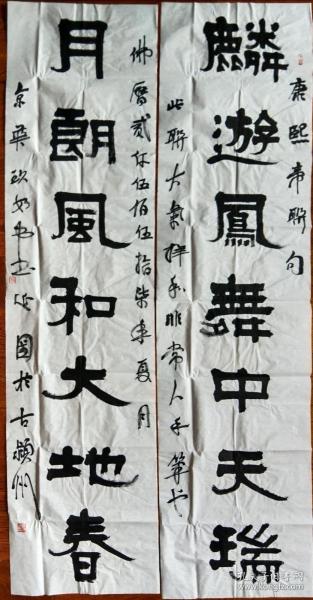 康熙帝聯句
麟遊鳳舞中天瑞
此聯大氣祥和非常人手筆也
佛曆貳仟伍佰伍拾柒年夏月
月朗風和大地春
於古潁州